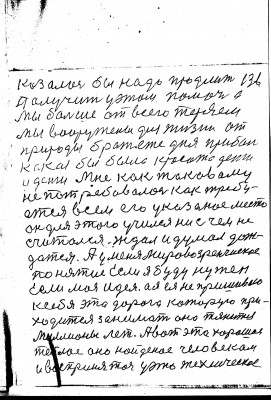 казалос бы надо продлит 136
Получит уэтом помоч а
мы болше от всего теряем
мы вооружены для жизни от
природы бражете дня прибои
какая бы была красота денги
и денги Мне как таковаму
не потребовалос как требу-
ется всем его указаное место
он для этого учился нис чем не
считолся. ждал и думал дож-
датся. А у меня мировоззренческое
понятие если я буду нужен
если моя идея. а я не пришивал
к себя эта дорога которую при-
ходится занимат она тянится
миллионы лет. А вот эта хорошая
теплое оно найденое человекам
и воспринятоя уэто техническое